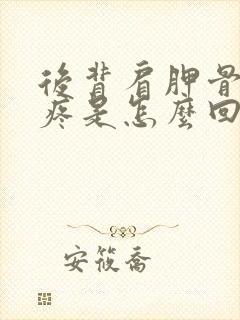 後背肩胛骨
疼是怎麼回
安筱喬